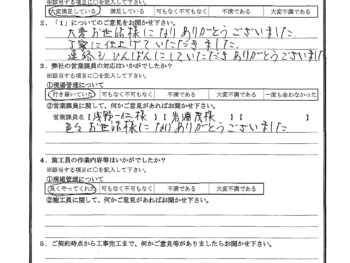 ※該当する項目に○を記入して下さい。
大変満足している 満足している 可もなく不可もなく 不満である 大変不満である
2．「1」についてのご意見をお聞かせ下さい。
大変お世話様になりありがとうございました
丁寧に仕上げていただきました
連絡もひんぱんにしていただきありがとうございました
3．弊社の営業課員の対応はいかがでしたか？
※該当する項目に○を記入して下さい。
①現場管理について
行き届いていた 可もなく不可もなく 不満である 大変不満である 一度も会わなかった
②営業課員に関して、何かご意見があればお聞かせ下さい。
営業課員名【浅野 様】【岩瀬茂様】【 】
色々お世話様になりありがとうございました
4．施工員の作業内容等はいかがでしたか？
※該当する項目に○を記入して下さい。
①現場管理について
良くやってくれた 可もなく不可もなく 不満である 大変不満である
②施工員に関して、何かご意見があればお聞かせ下さい。
5．ご契約時点から工事完工まで、何かご意見等がありましたらお聞かせ下さい。